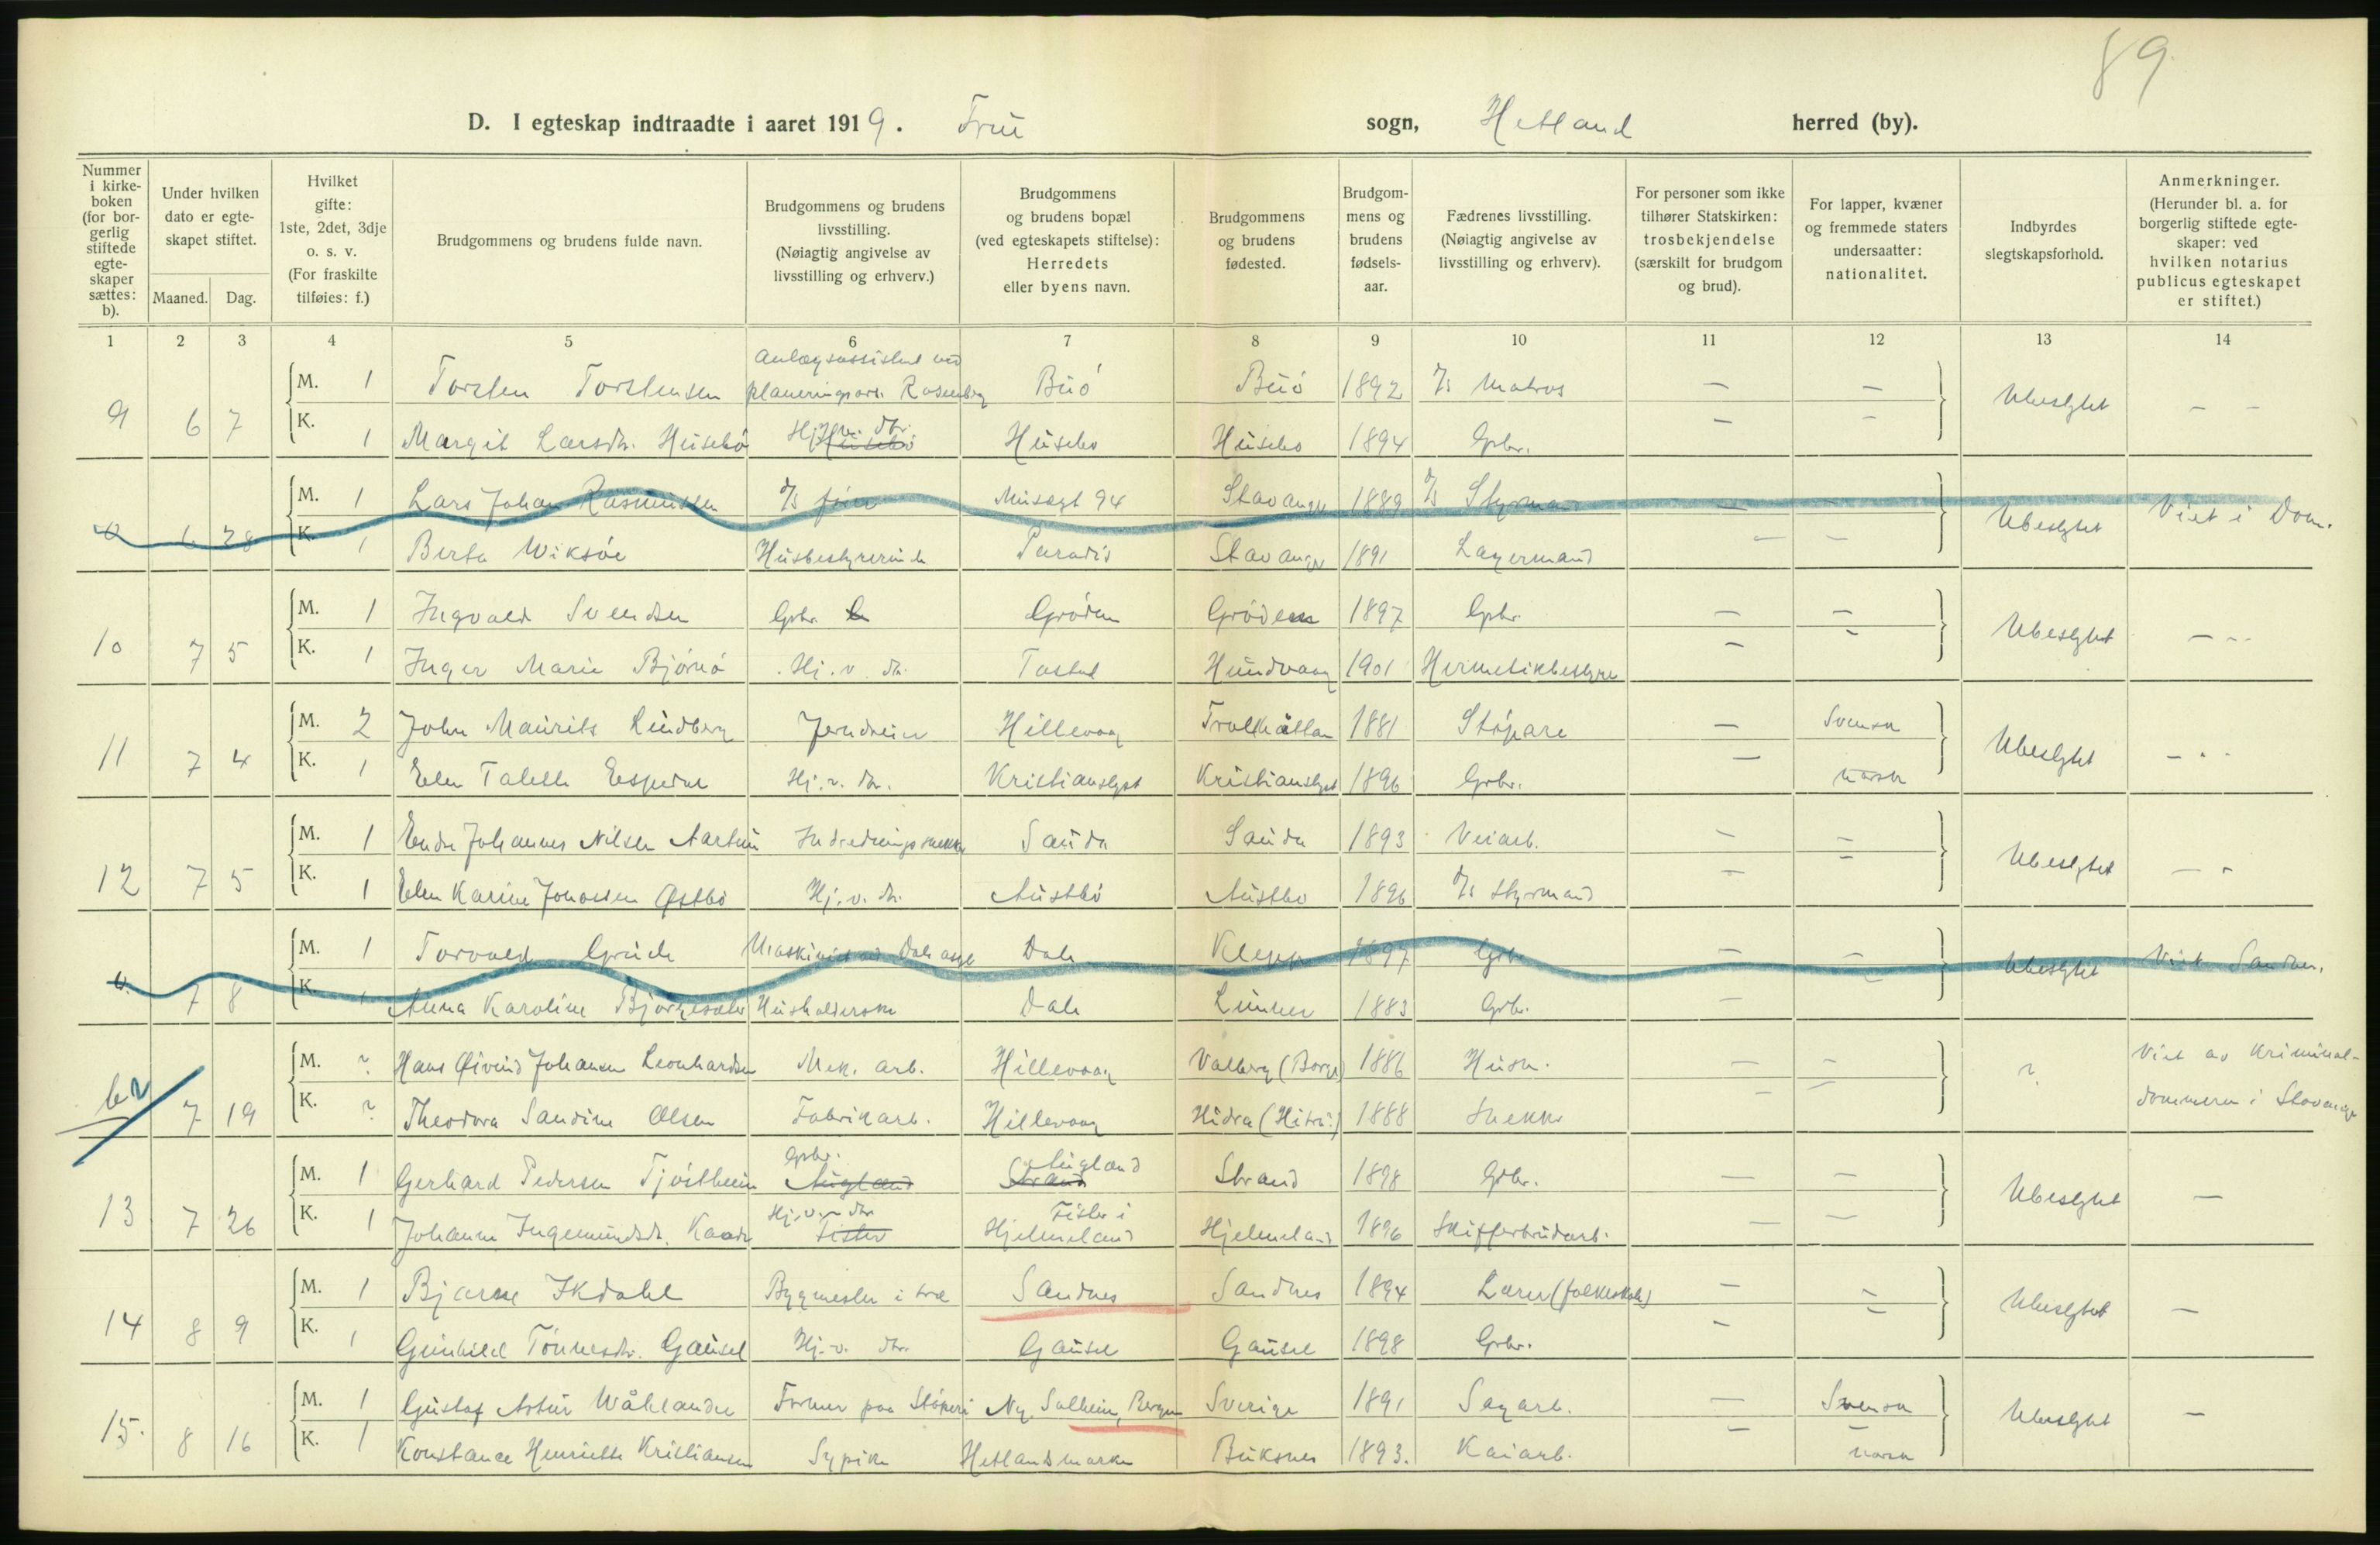 89
D. I egteskap indtraadte i aaret 1919. Frue sogn, Hetland herred (by).
Nummer i kirkeboken (for borgerlig stiftede egteskaper sættes: b).
Under hvilken dato er egteskapet stiftet.
Maaned. Dag.
Hvilket gifte: 1ste, 2det, 3dje o. s. v. (For fraskilte tilføies: f.)
Brudgommens og brudens fulde navn.
Brudgommens og brudens livsstilling. (Nøiagtig angivelse av livsstilling og erhverv.)
Brudgommens og brudens bopæl (ved egteskapets stiftelse): Herredets eller byens navn.
Brudgommens og brudens fødested.
Brudgommens og brudens fødselsaar.
Fædrenes livsstilling. (Nøiagtig angivelse av livsstilling og erhverv).
For personer som ikke tilhører Statskirken: trosbekjendelse (særskilt for brudgom og brud).
For lapper, kvæner og fremmede staters undersaatter: nationalitet.
Indbyrdes slegtskapsforhold.
Anmerkninger. (Herunder bl. a. for borgerlig stiftede egteskaper: ved hvilken notarius publicus egteskapet er stiftet.)
1 2 3 4 5 6 7 8 9 10 11 12 13 14
9 6 7 M. 1 Torsten Torstensen Anlægsassistent ved planeringsarb. Rosenberg Buö Buö 1892 d/s Matros — — Ubeslgtet — —
K. 1 Margit Larsdtr. Husebö Hj. v. dtr. Husebö Husebo Husebo 1894 Gbr. — —
6 28 M. 1 Lars Johan Rasmussen d/s Musegt 94 Stavanger 1889 d/s Styrmand — Ubeslgtet Viet i Dom.
K. 1 Berta Wiksöe Husbestyrerinde Paradis Stavanger 1891 Lagermand — —
10 7 5 M. 1 Ingvald Svendsen Gbr. Gröden Gröden 1897 Gbr. — — Ubeslgtet — - -
K. 1 Inger Marie Björnö Hj. v. dtr. Tasted Hundvaag 1901 Hermetikbestyrer — —
11 7 4 M. 2 John Maurits Lindberg Jerndreier Hillevaag Trolhättan 1881 Stöpare — Svensk Ubeslgtet — - -
K. 1 Elen Talette Espedal Hj. v. dtr. Kristianslyst Kristianslyst 1896 Gbr. — norsk
12 7 5 M. 1 Endre Johannes Nilsen Aartun Indredningssnekker Sauda Sauda 1893 Veiarb. — — Ubeslgtet — -
K. 1 Elen Karine Jonassen Østbö Hj. v. dtr. Austbö Austbo 1896 d/s Styrmand — —
7 8 M. 1 Torvald Grude Maskinist ved Dale asyl Dale Klepp 1897 Gbr. — — Ubeslgtet Viet Sandnes.
K. 1 Anna Karoline Björgesæter Husholderske Dale Lunner 1883 Gbr. — —
b2 7 19 M. ? Hans Øivind Johansen Leonhardsen Mek. arb. Hillevaag Valberg (Borge) 1886 Husm. — — ? Viet av Kriminaldommeren i Stavanger
K. ? Theodora Sandine Olsen Fabrikarb. Hillevaag Hidra (Hitrö) 1888 Snekker — —
13 7 26 M. 1 Gerhard Pedersen Tjöstheim Gbr. Augland Augland Strand Strand 1898 Gbr. — — Ubeslgtet —
K. 1 Johanne Ingemundsdtr. Kaada Hj. v. dtr. Fister Fister i Hjelmeland Hjelmeland 1896 Skifferbrudarb. — —
14 8 9 M. 1 Bjarne Ikdahl Bygmester i træ Sandnes Sandnes 1894 Lærer (folkeskole) — — Ubeslgtet —
K. 1 Gunhild Tönnesdtr. Gausel Hj. v. dtr. Gausel Gausel 1898 Gbr. — —
15. 8 16 M. 1 Gustaf Artur Wåhlander Former paa Stöperi Ny. Solheim, Bergen Sverige 1891 Sagarb. — Svensk Ubeslgtet —
K. 1 Konstance Henriette Kristiansen Sypike Hetlandsmarken Buksnes 1893. Kaiarb. — norsk